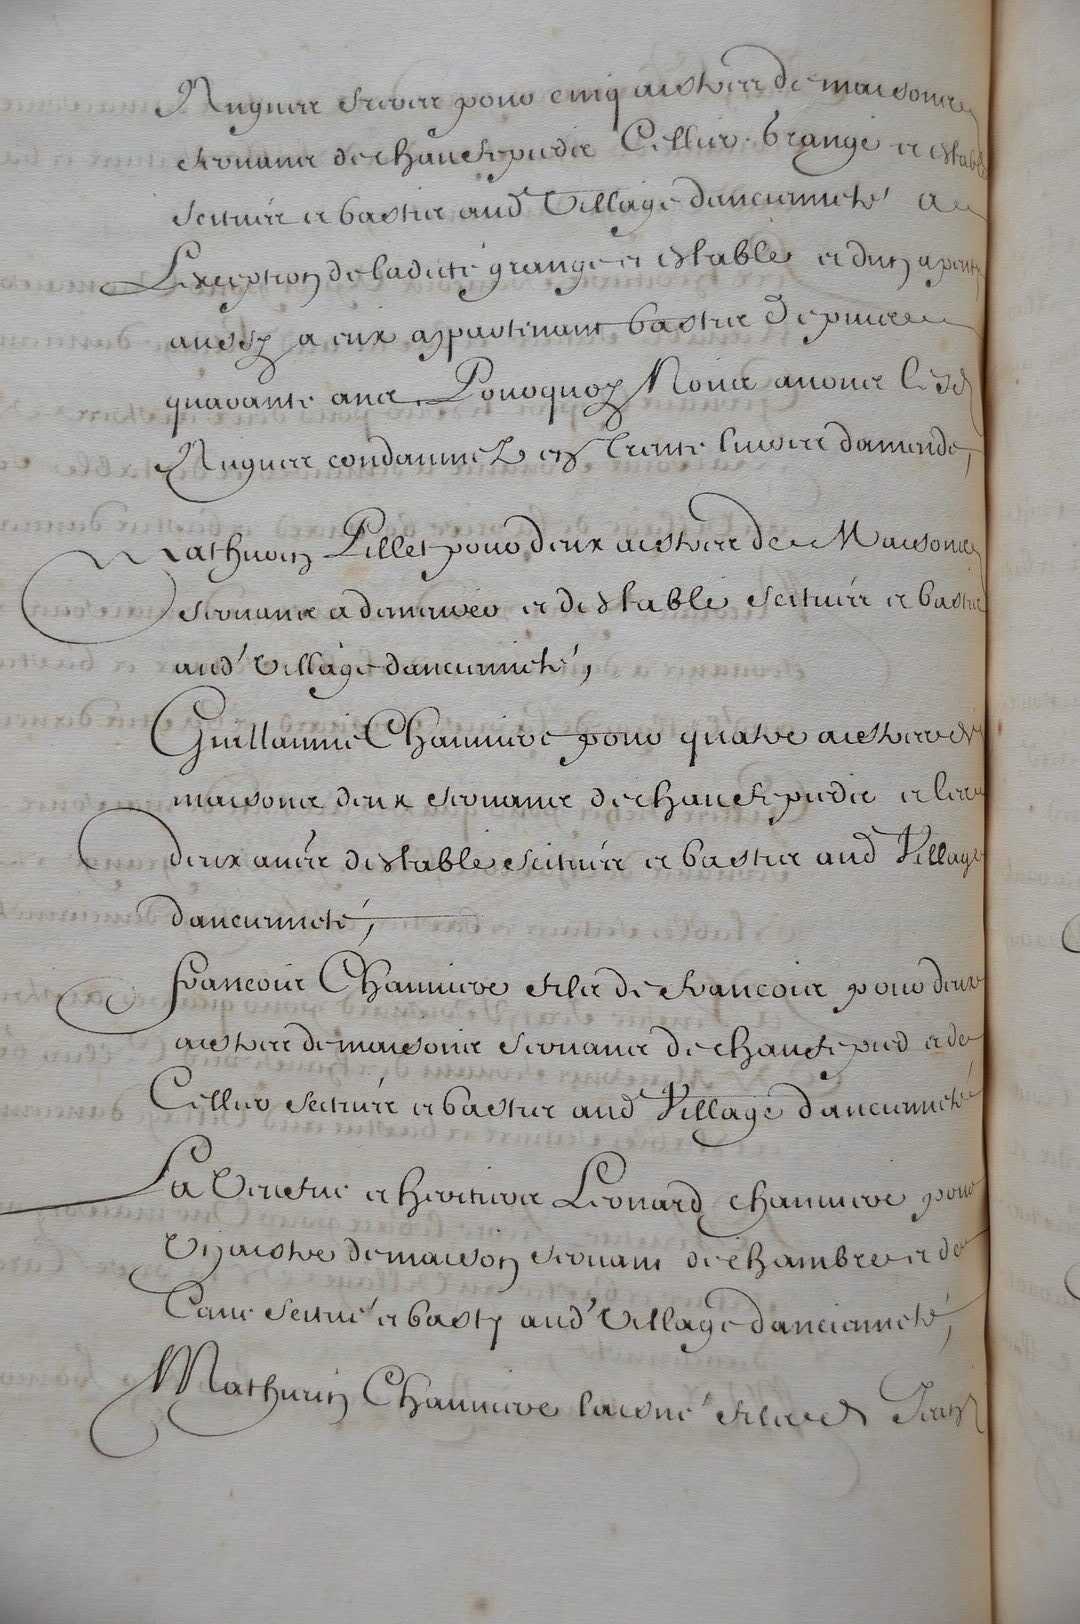 Huguer freres pour cinq aistres de maisons
servans de chaufepieds Cellier Grange et estable
scituées et basties aud Village dancienneté a
Lexception de ladicte grange et estable et dun apenty
aussy a eux appartenant basties depuis
quarante ans Pourquoy Nous avons lesd
Huguer condamnez en Trente livres damende,
Mathurin Pillet pour deux aistres de Maisons
servans a demeurer et destable scituées et basties
aud' Village dancienneté,
Guillaume Chauniere pour quatre aistres de
maisons deux servans de chaufepieds et les
deux autres destable scituées et basties aud Village
dancienneté,
francois Chauniere fils de francois pour deux
aistres de maisons servans de chaufepied et de
Cellier scituées et basties aud Village dancienneté
La Veufve et heritiers Leonard Chauniere pour
Un aistre de maison servant de chambre et de
Cave scitué et basty aud' Village dancienneté,
Mathurin Chauniere laisné fils de Jean